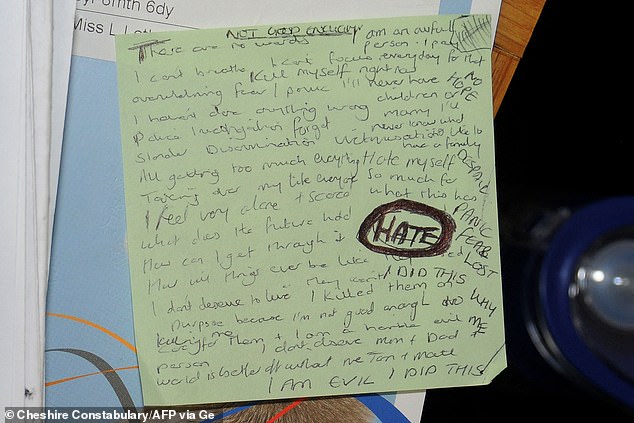 6dy
Miss L
NOT GOOD ENOUGH
There are no words
I am an awful person. I pay everyday for that
I can't breathe I can't focus
Kill myself right now
overwhelming fear / panic I'll never have
NO
HOPE
children or
I haven't done anything wrong
marry I'll
never know what
Police investigation forget
Slander Discrimination Victimisation
like to
have a family
All getting too much everything
I Hate myself
DESPAIR
Taking over my life everyone
so much for
I feel very alone + scared
what this has
What does the future hold
PANIC
HATE
FEAR
How can I get through it
LOST
How will things ever be like
I DID THIS
I don't deserve to live
I killed them on
WHY
purpose because I'm not good enough
ME
care for them + I am a horrible evil
person
I don't deserve mum + Dad +
world is better off without me
I AM EVIL I DID THIS
© Cheshire Constabulary/AFP via Ge